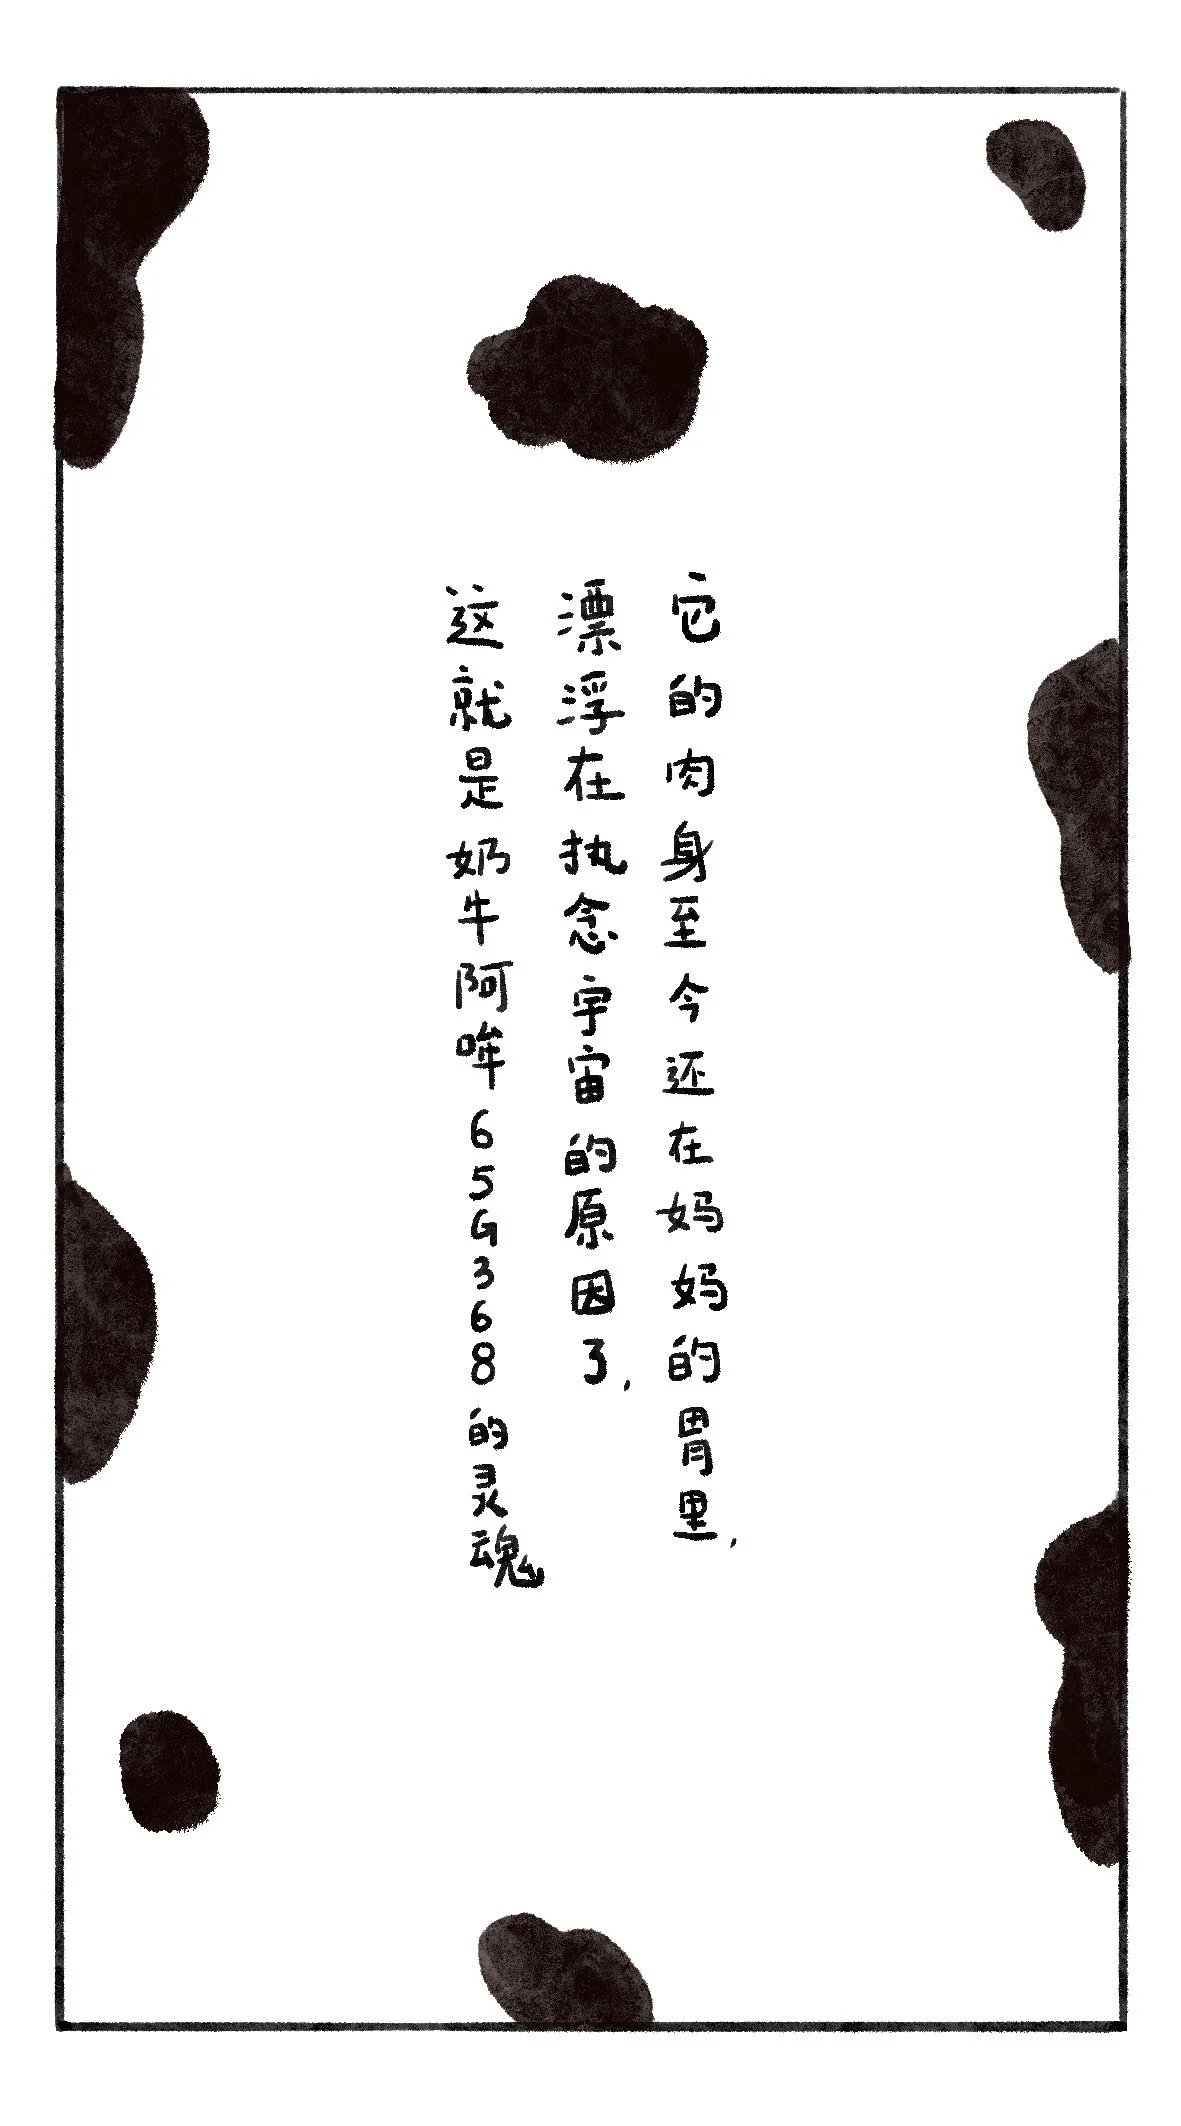 它的肉身至今还在妈妈的胃里，
漂浮在执念宇宙的原因了，
这就是奶牛阿哞65G368的灵魂